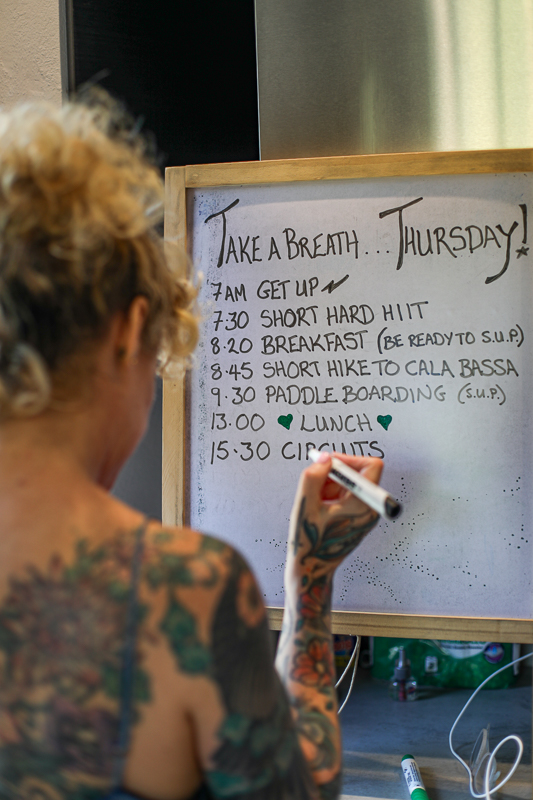 TAKE A BREATH... THURSDAY!
7AM GET UP
7:30 SHORT HARD HIIT
8:20 BREAKFAST (BE READY TO S.U.P.)
8:45 SHORT HIKE TO CALA BASSA
9.30 PADDLE BOARDING (S.U.P.)
13.00 💚 LUNCH 💚
15.30 CIRCUITS